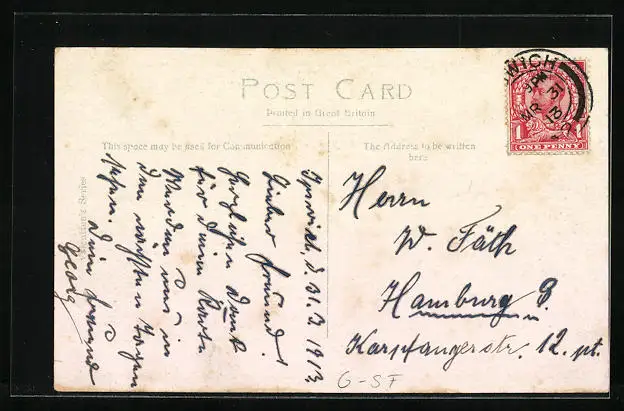 POST CARD
Printed in Great Britain
This space may be used for Communication
The Address to be written
here
Ipswich, d. 31.3.1913.
Lieber Freund!
Herzlichen Dank
für deine Karte
Werden uns in
den nächsten Tagen
sehen. Dein Freund
Georg
Herrn
W. Fäth
Hamburg 8.
Karpfangerstr. 12. pt.
G-SF
WICH
MR 31
13
1 ONE PENNY 1
's Series